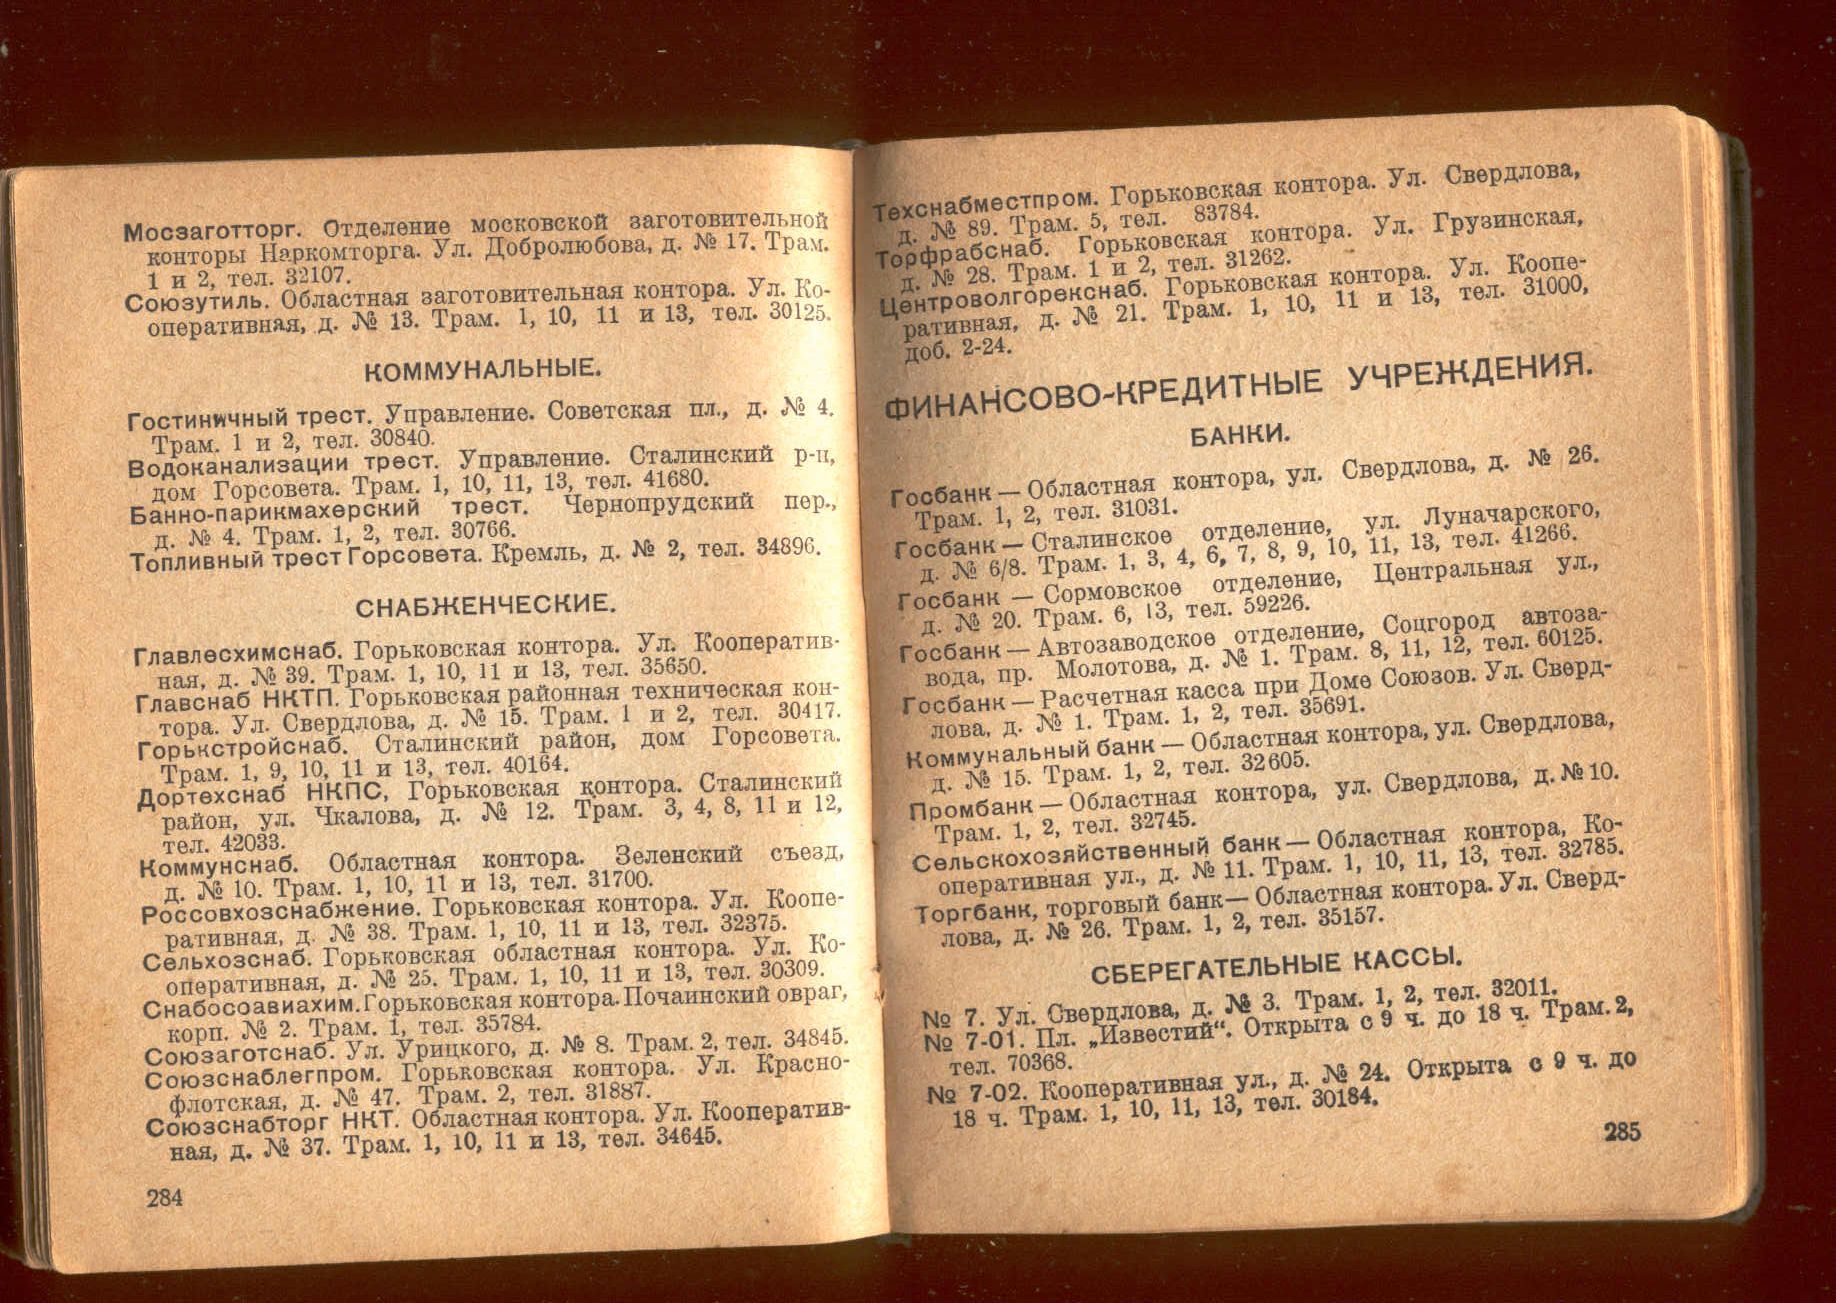 Мосзаготторг. Отделение московской заготовительной
конторы Наркомторга. Ул. Добролюбова, д. № 17. Трам.
1 и 2, тел. 32107.
Союзутиль. Областная заготовительная контора. Ул. Ко-
оперативная, д. № 13. Трам. 1, 10, 11 и 13, тел. 30125.
КОММУНАЛЬНЫЕ.
Гостиничный трест. Управление. Советская пл., д. № 4.
Трам. 1 и 2, тел. 30840.
Водоканализации трест. Управление. Сталинский р-н,
дом Горсовета. Трам. 1, 10, 11, 13, тел. 41680.
Банно-парикмахерский трест. Чернопрудский пер.,
д. № 4. Трам. 1, 2, тел. 30766.
Топливный трест Горсовета. Кремль, д. № 2, тел. 34896.
СНАБЖЕНЧЕСКИЕ.
Главлесхимснаб. Горьковская контора. Ул. Кооператив-
ная, д. № 39. Трам. 1, 10, 11 и 13, тел. 35650.
Главснаб НКТП. Горьковская районная техническая кон-
тора. Ул. Свердлова, д. № 15. Трам. 1 и 2, тел. 30417.
Горькстройснаб. Сталинский район, дом Горсовета.
Трам. 1, 9, 10, 11 и 13, тел. 40164.
Дортехснаб НКПС, Горьковская контора. Сталинский
район, ул. Чкалова, д. № 12. Трам. 3, 4, 8, 11 и 12,
тел. 42033.
Коммунснаб. Областная контора. Зеленский съезд,
д. № 10. Трам. 1, 10, 11 и 13, тел. 31700.
Россовхозснабжение. Горьковская контора. Ул. Коопе-
ративная, д. № 38. Трам. 1, 10, 11 и 13, тел. 32375.
Сельхозснаб. Горьковская областная контора. Ул. Ко-
оперативная, д. № 25. Трам. 1, 10, 11 и 13, тел. 30309.
Снабосоавиахим. Горьковская контора. Почаинский овраг,
корп. № 2. Трам. 1, тел. 35784.
Союзаготснаб. Ул. Урицкого, д. № 8. Трам. 2, тел. 34845.
Союзснаблегпром. Горьковская контора. Ул. Красно-
флотская, д. № 47. Трам. 2, тел. 31887.
Союзснабторг НКТ. Областная контора. Ул. Кооператив-
ная, д. № 37. Трам. 1, 10, 11 и 13, тел. 34645.
284
Техснабместпром. Горьковская контора. Ул. Свердлова,
д. № 89. Трам. 5, тел. 83784.
Торфрабснаб. Горьковская контора. Ул. Грузинская,
д. № 28. Трам. 1 и 2, тел. 31262.
Центроволгорекснаб. Горьковская контора. Ул. Коопе-
ративная, д. № 21. Трам. 1, 10, 11 и 13, тел. 31000,
доб. 2-24.
ФИНАНСОВО-КРЕДИТНЫЕ УЧРЕЖДЕНИЯ.
БАНКИ.
Госбанк — Областная контора, ул. Свердлова, д. № 26.
Трам. 1, 2, тел. 31031.
Госбанк — Сталинское отделение, ул. Луначарского,
д. № 6/8. Трам. 1, 3, 4, 6, 7, 8, 9, 10, 11, 13, тел. 41266.
Госбанк — Сормовское отделение, Центральная ул.,
д. № 20. Трам. 6, 13, тел. 59226.
Госбанк — Автозаводское отделение, Соцгород автоза-
вода, пр. Молотова, д. № 1. Трам. 8, 11, 12, тел. 60125.
Госбанк — Расчетная касса при Доме Союзов. Ул. Сверд-
лова, д. № 1. Трам. 1, 2, тел. 35691.
Коммунальный банк — Областная контора, ул. Свердлова,
д. № 15. Трам. 1, 2, тел. 32605.
Промбанк — Областная контора, ул. Свердлова, д. № 10.
Трам. 1, 2, тел. 32745.
Сельскохозяйственный банк — Областная контора, Ко-
оперативная ул., д. № 11. Трам. 1, 10, 11, 13, тел. 32785.
Торгбанк, торговый банк — Областная контора. Ул. Сверд-
лова, д. № 26. Трам. 1, 2, тел. 35157.
СБЕРЕГАТЕЛЬНЫЕ КАССЫ.
№ 7. Ул. Свердлова, д. № 3. Трам. 1, 2, тел. 32011.
№ 7-01. Пл. „Известий“. Открыта с 9 ч. до 18 ч. Трам. 2,
тел. 70368.
№ 7-02. Кооперативная ул., д. № 24. Открыта с 9 ч. до
18 ч. Трам. 1, 10, 11, 13, тел. 30184.
285